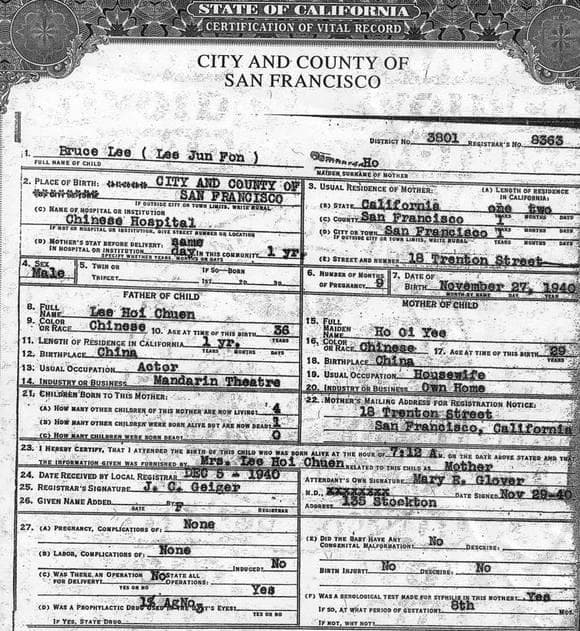 STATE OF CALIFORNIA
CERTIFICATION OF VITAL RECORD
CITY AND COUNTY OF
SAN FRANCISCO
DISTRICT NO. 3801 REGISTRAR'S NO. 8363
1. Bruce Lee ( Lee Jun Fon ) Ho
FULL NAME OF CHILD MAIDEN SURNAME OF MOTHER
2. PLACE OF BIRTH: CITY AND COUNTY OF
SAN FRANCISCO
IF OUTSIDE CITY OR TOWN LIMITS, WRITE RURAL
(C) NAME OF HOSPITAL OR INSTITUTION
Chinese Hospital
IF NOT IN HOSPITAL OR INSTITUTION, GIVE STREET NUMBER OR LOCATION
(D) MOTHER'S STAY BEFORE DELIVERY: same
IN HOSPITAL OR INSTITUTION day IN THIS COMMUNITY 1 yr.
SPECIFY WHETHER YEARS, MONTHS OR DAYS
3. USUAL RESIDENCE OF MOTHER: (A) LENGTH OF RESIDENCE
IN CALIFORNIA:
(B) STATE California one two
YEARS MONTHS DAYS
(C) COUNTY San Francisco
(D) CITY OR TOWN San Francisco
IF OUTSIDE CITY OR TOWN LIMITS, WRITE RURAL YEARS MONTHS DAYS
(E) STREET AND NUMBER 18 Trenton Street
4. SEX Male
5. TWIN OR TRIPLET IF SO—BORN
1ST TO 2D TO 3D
6. NUMBER OF MONTHS OF PREGNANCY 9
7. DATE OF BIRTH November 27, 1940
MONTH BY NAME DAY YEAR
FATHER OF CHILD
8. FULL NAME Lee Hoi Chuen
9. COLOR OR RACE Chinese 10. AGE AT TIME OF THIS BIRTH 36 YEARS
11. LENGTH OF RESIDENCE IN CALIFORNIA 1 yr.
YEARS MONTHS DAYS
12. BIRTHPLACE China
13. USUAL OCCUPATION Actor
14. INDUSTRY OR BUSINESS Mandarin Theatre
MOTHER OF CHILD
15. FULL MAIDEN NAME Ho Oi Yee
16. COLOR OR RACE Chinese 17. AGE AT TIME OF THIS BIRTH 29 YEARS
18. BIRTHPLACE China
19. USUAL OCCUPATION Housewife
20. INDUSTRY OR BUSINESS Own Home
21. CHILDREN BORN TO THIS MOTHER:
(A) HOW MANY OTHER CHILDREN OF THIS MOTHER ARE NOW LIVING? 4
(B) HOW MANY OTHER CHILDREN WERE BORN ALIVE BUT ARE NOW DEAD? 1
(C) HOW MANY CHILDREN WERE BORN DEAD? 0
22. MOTHER'S MAILING ADDRESS FOR REGISTRATION NOTICE:
18 Trenton Street
San Francisco, California
23. I HEREBY CERTIFY, THAT I ATTENDED THE BIRTH OF THIS CHILD WHO WAS BORN ALIVE AT THE HOUR OF 7:12 A M. ON THE DATE ABOVE STATED AND THAT
THE INFORMATION GIVEN WAS FURNISHED BY Mrs. Lee Hoi Chuen, RELATED TO THIS CHILD AS Mother
24. DATE RECEIVED BY LOCAL REGISTRAR DEC 5 - 1940
25. REGISTRAR'S SIGNATURE J. C. Geiger
26. GIVEN NAME ADDED BY
DATE REGISTRAR
ATTENDANT'S OWN SIGNATURE Mary E. Glover
M.D., xxxxxxxx DATE SIGNED Nov 29-40
ADDRESS 135 Stockton
27. (A) PREGNANCY, COMPLICATIONS OF: None
(B) LABOR, COMPLICATIONS OF: None
INDUCED? No
(C) WAS THERE AN OPERATION FOR DELIVERY? No STATE ALL OPERATIONS:
YES OR NO
(D) WAS A PROPHYLACTIC DRUG USED IN THE BABY'S EYES? Yes
YES OR NO
IF YES, STATE DRUG 1% AgNo3
(E) DID THE BABY HAVE ANY CONGENITAL MALFORMATION? No DESCRIBE:
BIRTH INJURY? No DESCRIBE: No
(F) WAS A SEROLOGICAL TEST MADE FOR SYPHILIS IN THIS MOTHER? Yes
IF SO, AT WHAT PERIOD OF GESTATION? 8th MOS.
IF NOT, WHY NOT?